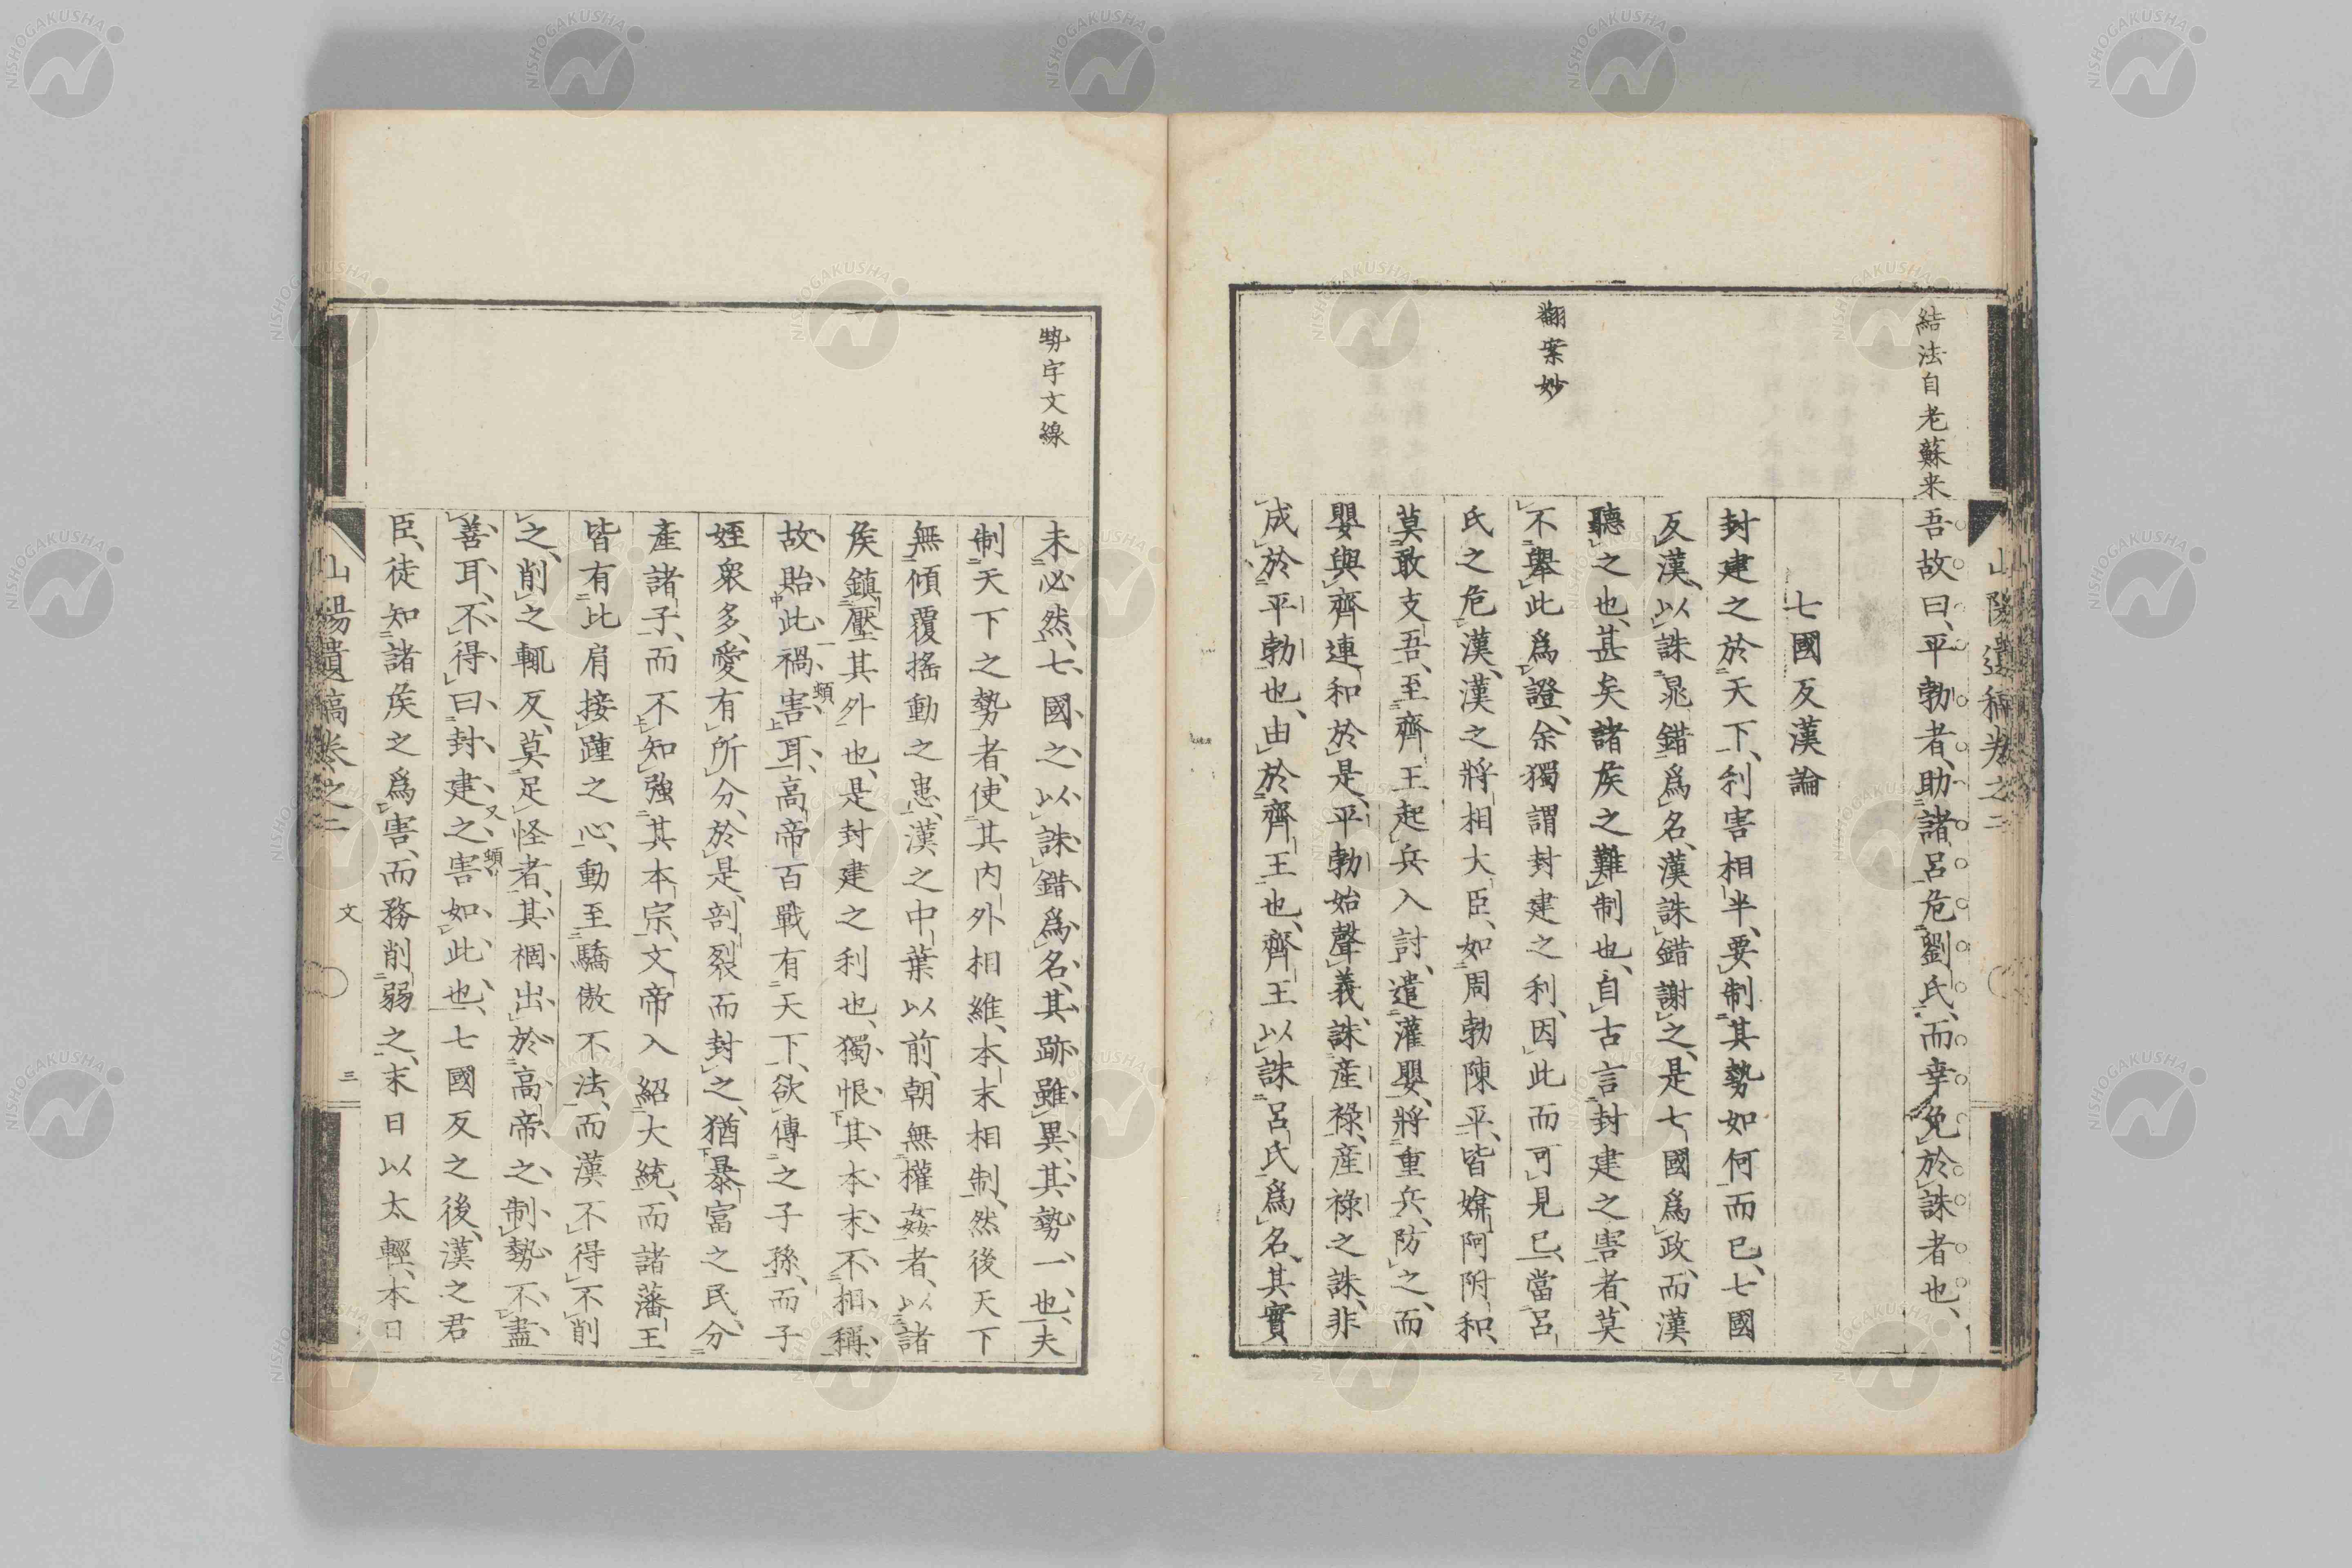 結法自老蘇来
吾故曰、平勃者、助諸呂危劉氏、而幸免於誅者也、
七國反漢論
封建之於天下、利害相半、要制其勢如何而已、七國
反漢、以誅晁錯爲名、漢誅錯謝之、是七國爲政、而漢
聽之也、甚矣諸矦之難制也、自古言封建之害者、莫
翻案妙
不舉此爲證、余獨謂封建之利、因此而可見已、當呂
氏之危漢、漢之將相大臣、如周勃陳平、皆媕阿附和、
莫敢支吾、至齊王起兵入討、遣灌嬰、將重兵、防之、而
嬰與齊連和、於是、平勃始聲義、誅産祿、産祿之誅、非
成於平勃也、由於齊王也、齊王以誅呂氏爲名、其實
勢字文線
未必然、七國之以誅錯爲名、其跡雖異、其勢一也、夫
制天下之勢者、使其内外相維、本末相制、然後天下
無傾覆搖動之患、漢之中葉以前、朝無權姦者、以諸
矦鎮壓其外也、是封建之利也、獨恨其本末不相稱、
故貽此禍害耳、高帝百戰有天下、欲傳之子孫、而子
姪衆多、愛有所分、於是、剖裂而封之、猶暴富之民、分
產諸子、而不知強其本宗、文帝入紹大統、而諸藩王
皆有比肩接踵之心、動至驕傲不法、而漢不得不削
之、削之輒反、莫足怪者、其禍出於高帝之制勢不盡
善耳、不得曰封建之害如此也、七國反之後、漢之君
臣、徒知諸矦之爲害、而務削弱之、末日以太輕、本日
山陽遺稿卷之二
文
三